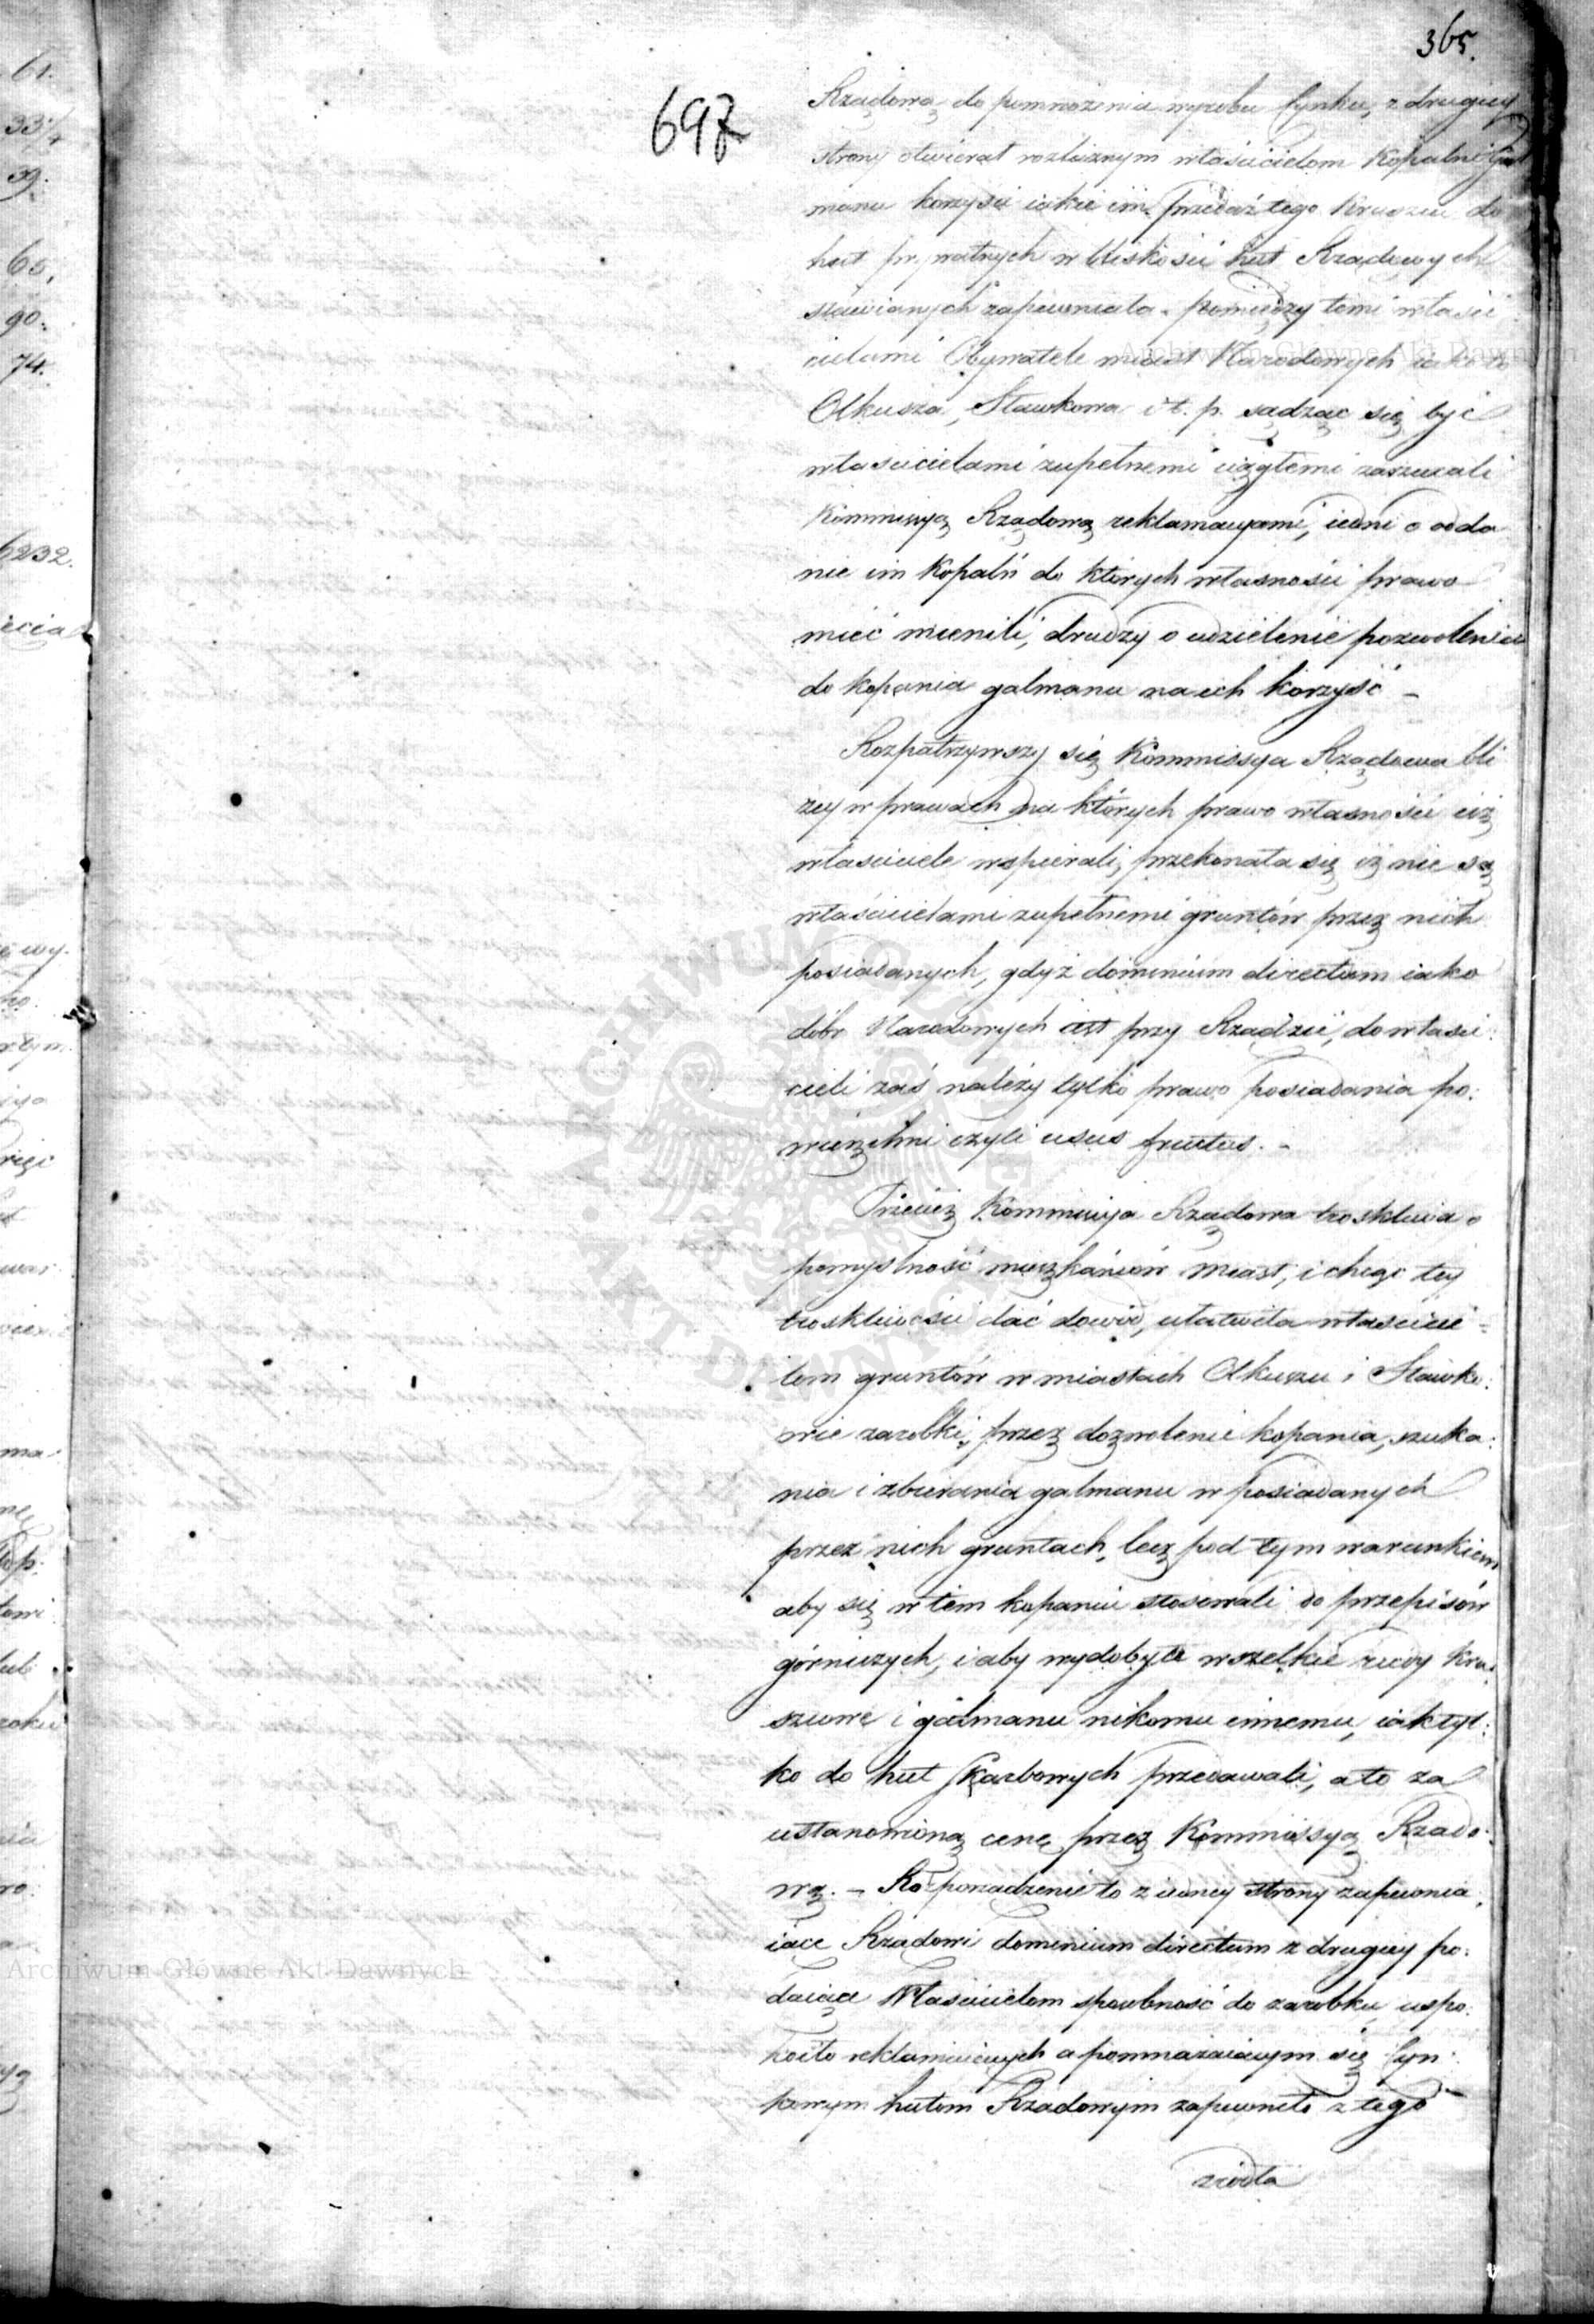 365.
697
Rządową do pomnożenia wyrobu Cynku, z drugiey
strony otwierał rozlicznym właścicielom Kopalni Gal
manu korzyści iakie im przedaż tego Kruszcu do
hut prywatnych w bliskości hut Rządowych
stawianych zapewniała. pomiędzy temi właści
cielami Obywatele miast Narodowych iako to
Olkusza, Sławkowa i t. p. sądząc się być
właścicielami zupełnemi zarzucali
Kommissyą Rządową reklamacyami, iedni o odda
nie im Kopalń do których własności prawo
mieć mienili, drudzy o udzielenie pozwolenia
do kopania galmanu na ich korzyść –
Rozpatrzywszy się Kommissya Rządowa bli
żey w prawach na których prawo własności ciż
właściciele wspierali, przekonała się iż nie są
właścicielami zupełnemi gruntów przez nich
posiadanych, gdyż dominium directum iako
dóbr Narodowych iest przy Rządzie, do właści:
cieli zaś należy tylko prawo posiadania po:
wierzchni czyli usus fructus. –
Przecież Kommissya Rządowa troskliwa o
pomyślność mieszkańców miast, i chcąc tey
troskliwości dać dowód, ułatwiła właścicie
lom gruntów w miastach Olkuszu i Sławko:
wie zarobki, przez dozwolenie kopania, szuka:
nia i zbierania galmanu w posiadanych
przez nich gruntach, lecz pod tym warunkiem
aby się w tem kopaniu stosowali do przepisów
górniczych, i aby wydobyte wszelkie rudy kru:
szcowe i galmanu nikomu innemu, iak tyl:
ko do hut Skarbowych przedawali, a to za
ustanowioną cenę przez Kommissyą Rządo:
wą. – Rozporządzenie to z iedney strony zapewnia:
iące Rządowi dominium directum z drugiey po:
daiące Właścicielom sposobność do zarobku, uspo:
koiło reklamuiących a pomnażaiącym się Cyn:
kowym hutom Rządowym zapewniło z tego
źródła